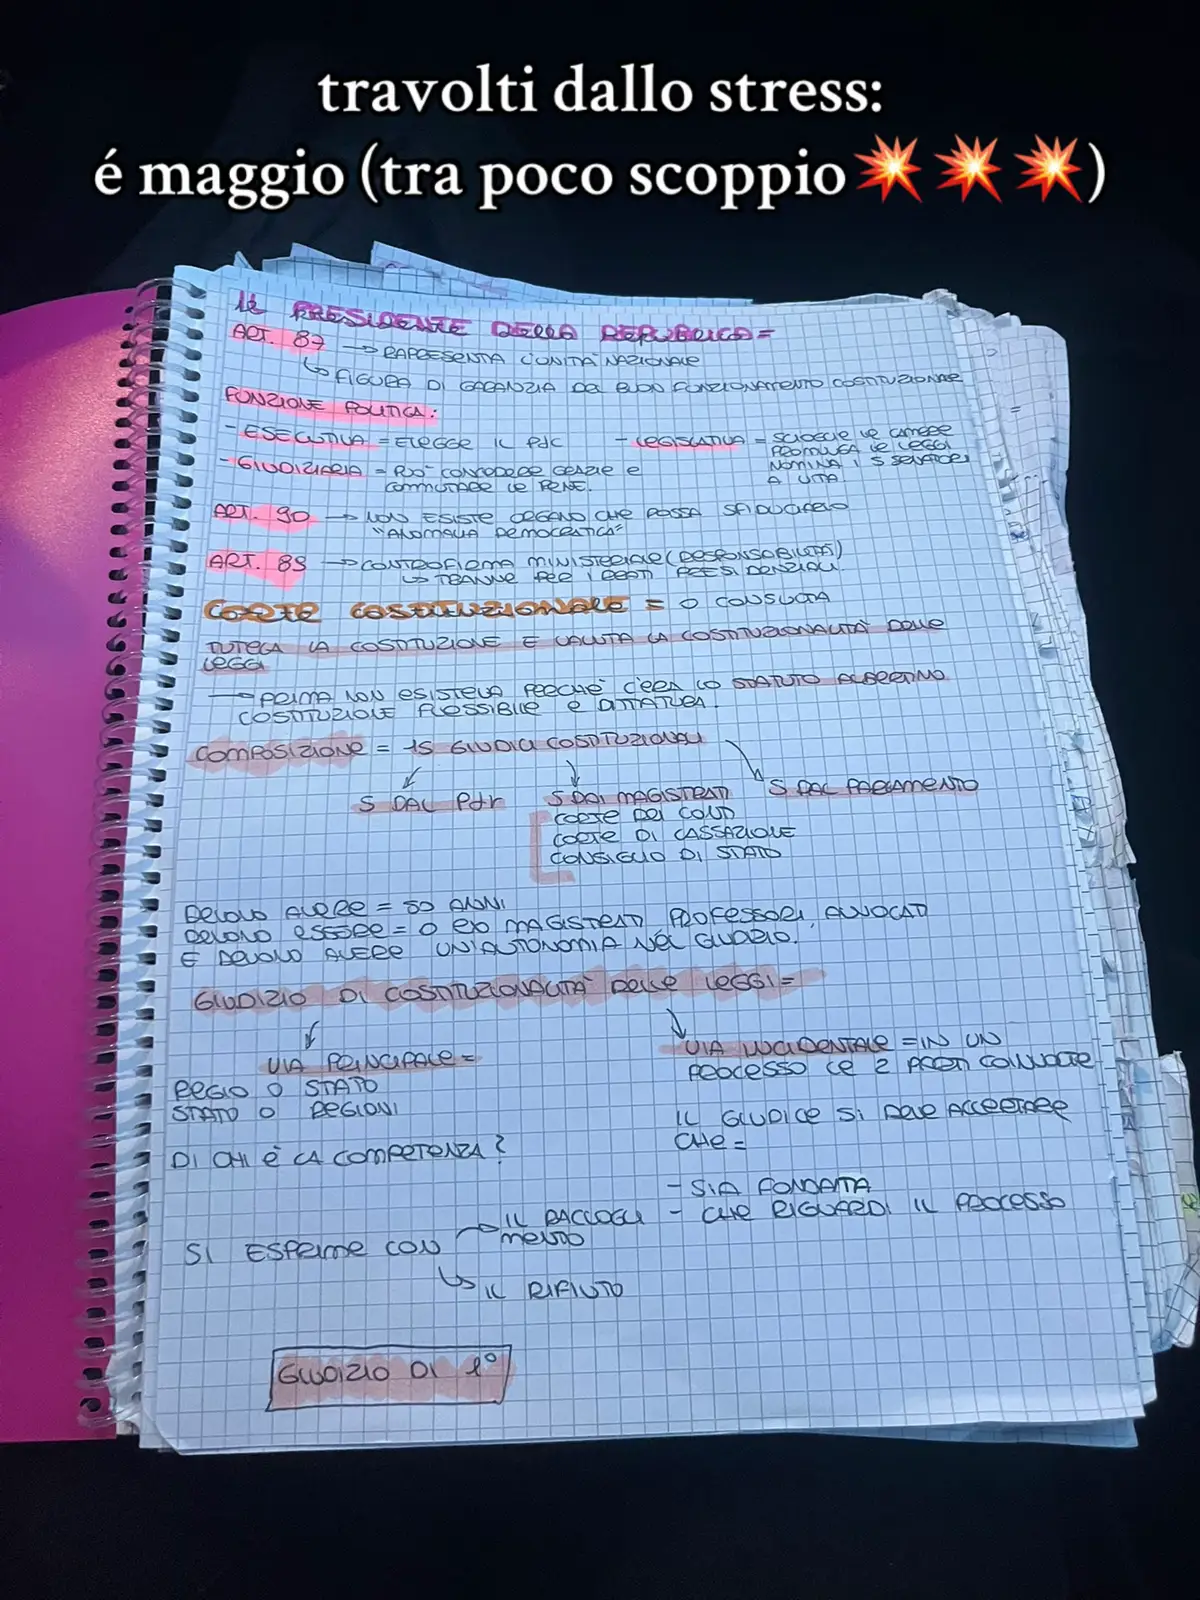 travolti dallo stress:
é maggio (tra poco scoppio💥💥💥)
IL PRESIDENTE DELLA REPUBBLICA =
ART. 87 → RAPPRESENTA L'UNITÀ NAZIONALE
↳ FIGURA DI GARANZIA DEL BUON FUNZIONAMENTO COSTITUZIONALE
FUNZIONE POLITICA:
- ESECUTIVA = ELEGGE IL PdC
- GIUDIZIARIA = PUÒ CONCEDERE GRAZIE E
COMMUTARE LE PENE.
- LEGISLATIVA = SCIOGLIE LE CAMERE
PROMULGA LE LEGGI
NOMINA I 5 SENATORI
A VITA
ART. 90 → NON ESISTE ORGANO CHE POSSA SFIDUCIARLO
"ANOMALIA DEMOCRATICA"
ART. 89 → CONTROFIRMA MINISTERIALE (RESPONSABILITÀ)
↳ TRANNE PER I REATI PRESIDENZIALI.
CORTE COSTITUZIONALE = O CONSULTA
TUTELA LA COSTITUZIONE E VALUTA LA COSTITUZIONALITÀ DELLE
LEGGI
→ PRIMA NON ESISTEVA PERCHÉ C'ERA LO STATUTO ALBERTINO
COSTITUZIONE FLESSIBILE E DITTATURA.
COMPOSIZIONE = 15 GIUDICI COSTITUZIONALI
5 DAL Pdr
5 DAI MAGISTRATI
CORTE DEI CONTI
CORTE DI CASSAZIONE
CONSIGLIO DI STATO
5 DAL PARLAMENTO
DEVONO AVERE = 50 ANNI
DEVONO ESSERE = O EX MAGISTRATI, PROFESSORI, AVVOCATI
E DEVONO AVERE UN'AUTONOMIA NEL GIUDIZIO.
GIUDIZIO DI COSTITUZIONALITÀ DELLE LEGGI =
VIA PRINCIPALE =
REGIO O STATO
STATO O REGIONI
DI CHI È LA COMPETENZA?
VIA INCIDENTALE = IN UN
PROCESSO LE 2 PARTI COINVOLTE
IL GIUDICE SI DEVE ACCERTARE
CHE =
- SIA FONDATA
- CHE RIGUARDI IL PROCESSO
SI ESPRIME CON → IL RACCOGLI
MENTO
↳ IL RIFIUTO
GIUDIZIO DI 1°